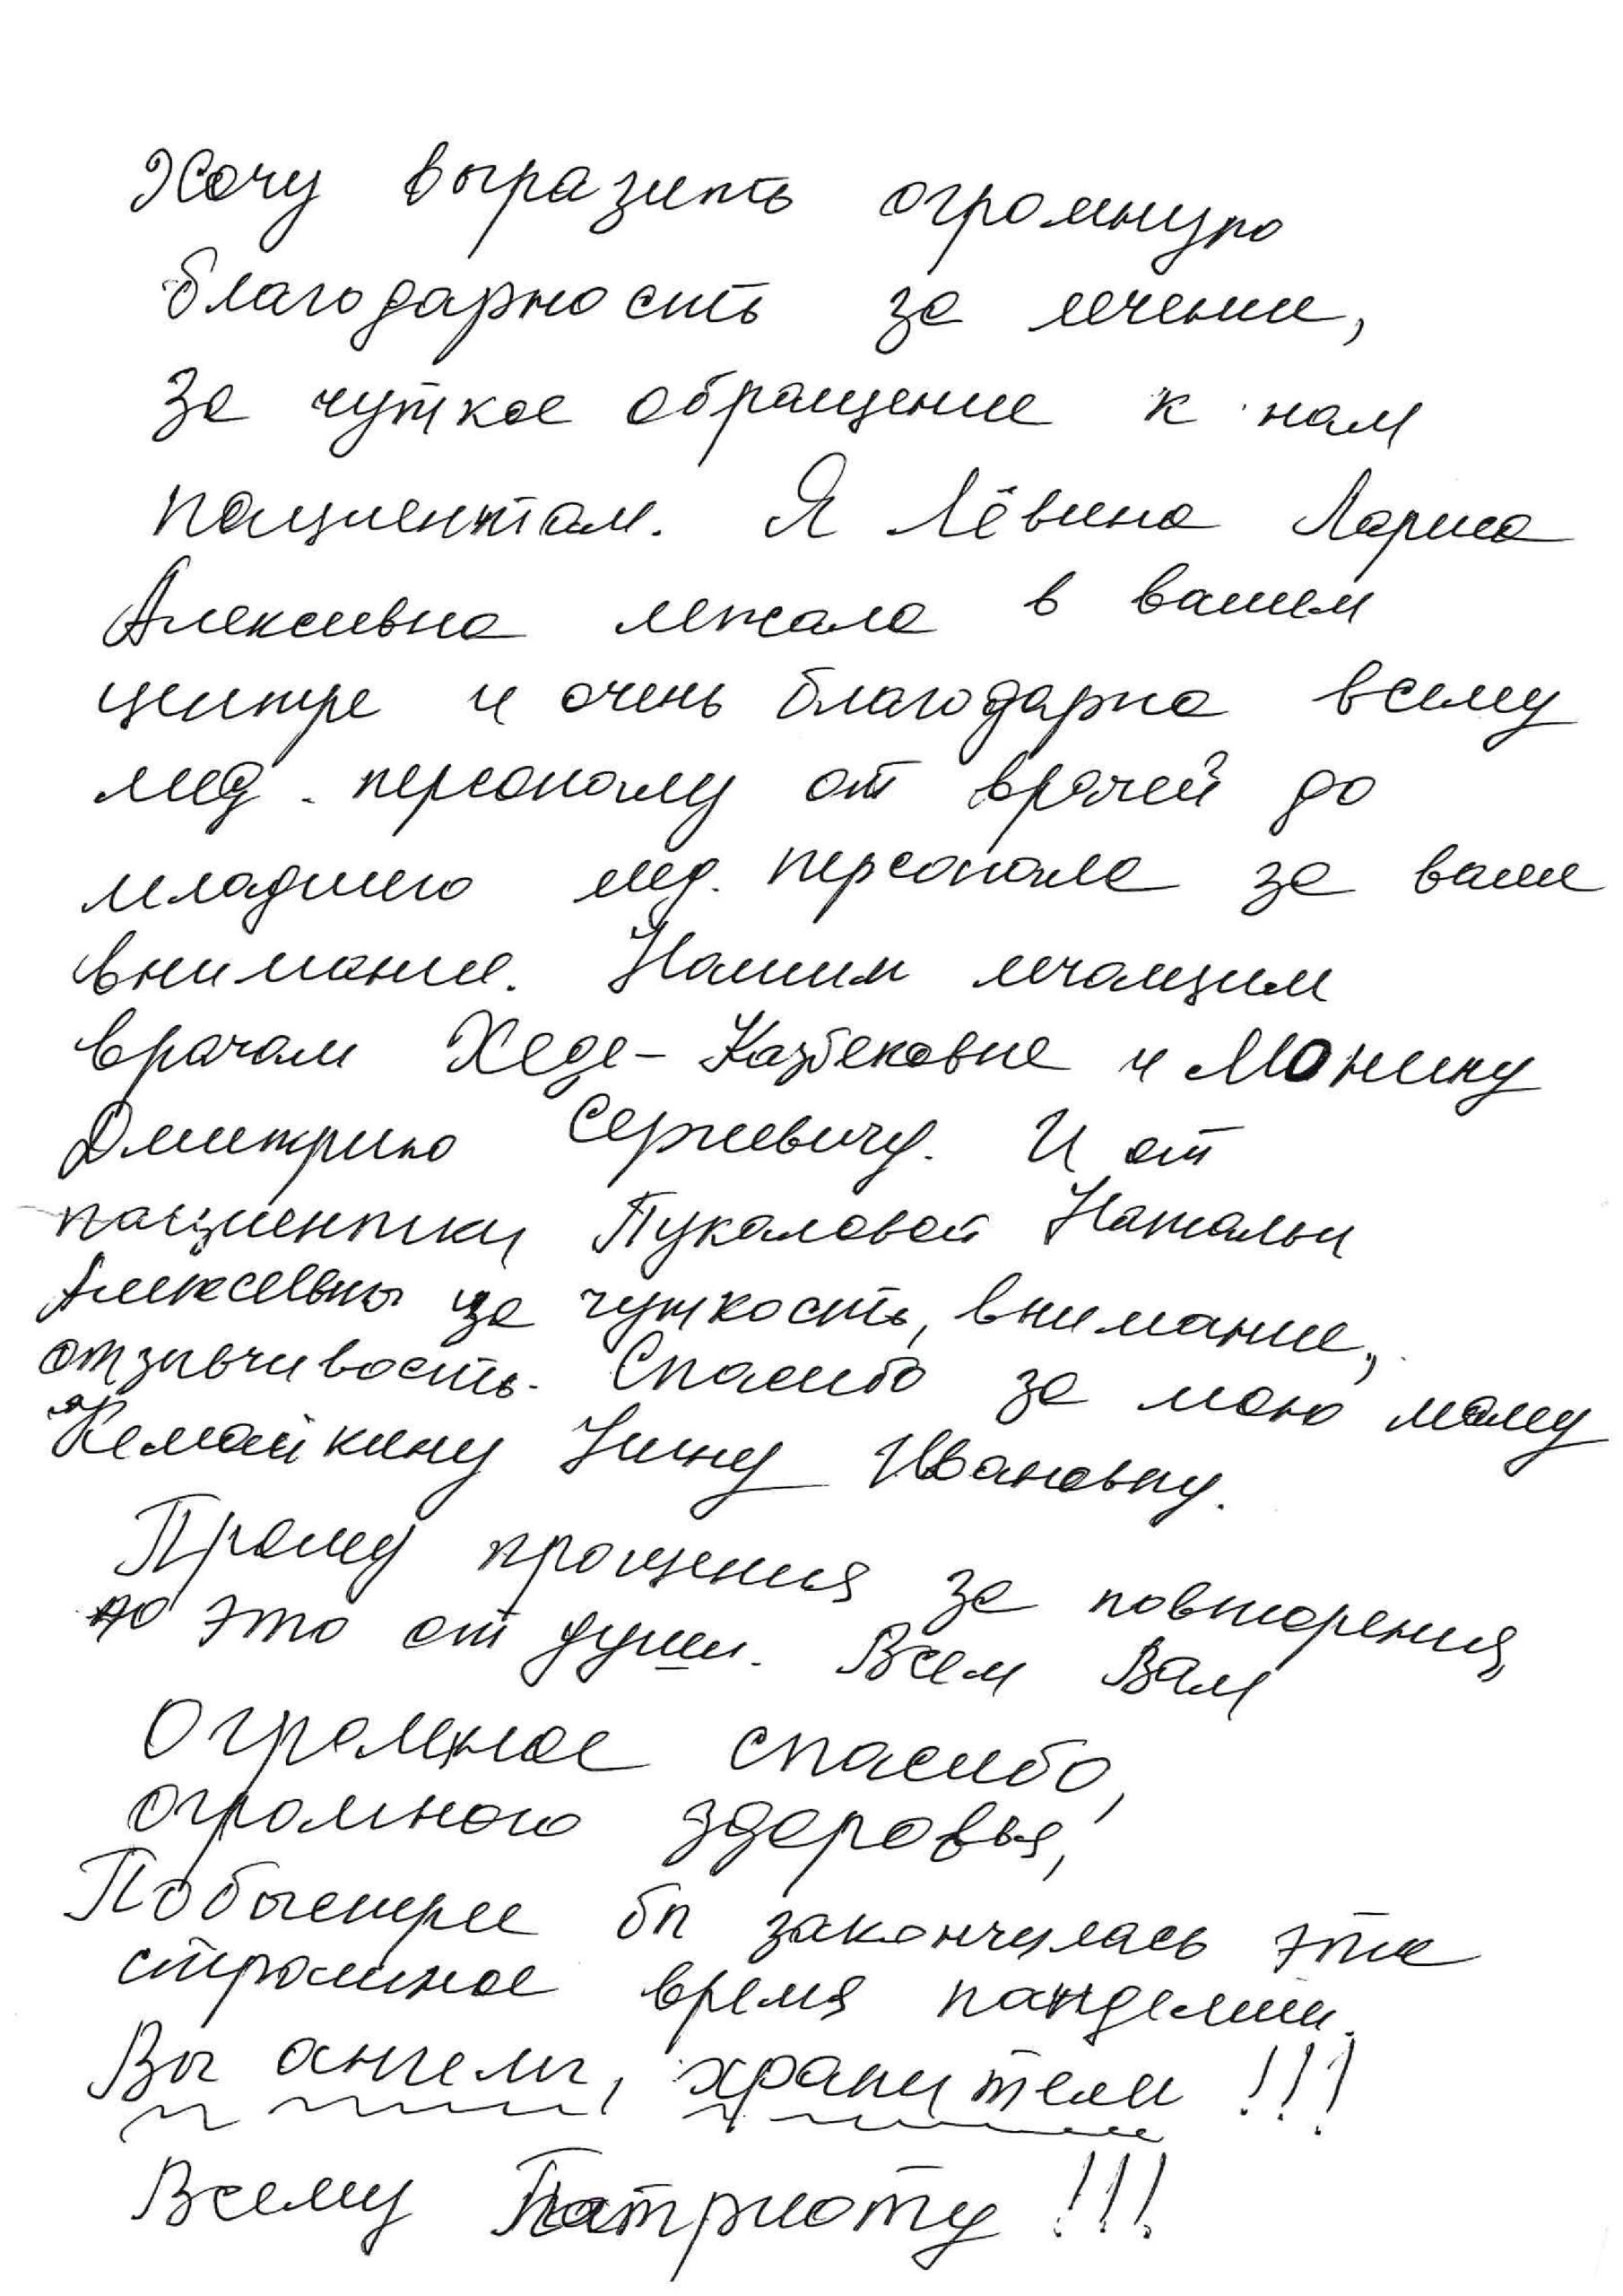 Хочу выразить огромную
благодарность за лечение,
За чуткое обращение к нам
пациентам. Я Лёвина Лариса
Алексеевна лежала в вашем
центре и очень благодарна всему
мед. персоналу от врачей до
младшего мед. персонала за ваше
внимание. Нашим лечащим
врачам Хеде-Казбековне и Монину
Дмитрию Сергеевичу. И от
пациентки Пукаловой Натальи
Алексеевны за чуткость, внимание,
отзывчивость. Спасибо за мою маму
Кемайкину Нину Ивановну.
Прошу прощения за повторения,
но это от души. Всем Вам
Огромное спасибо,
огромного здоровья,
Побыстрее бы закончилась это
страшное время пандемии.
Вы ангелы, хранители !!!
Всему Патриоту !!!